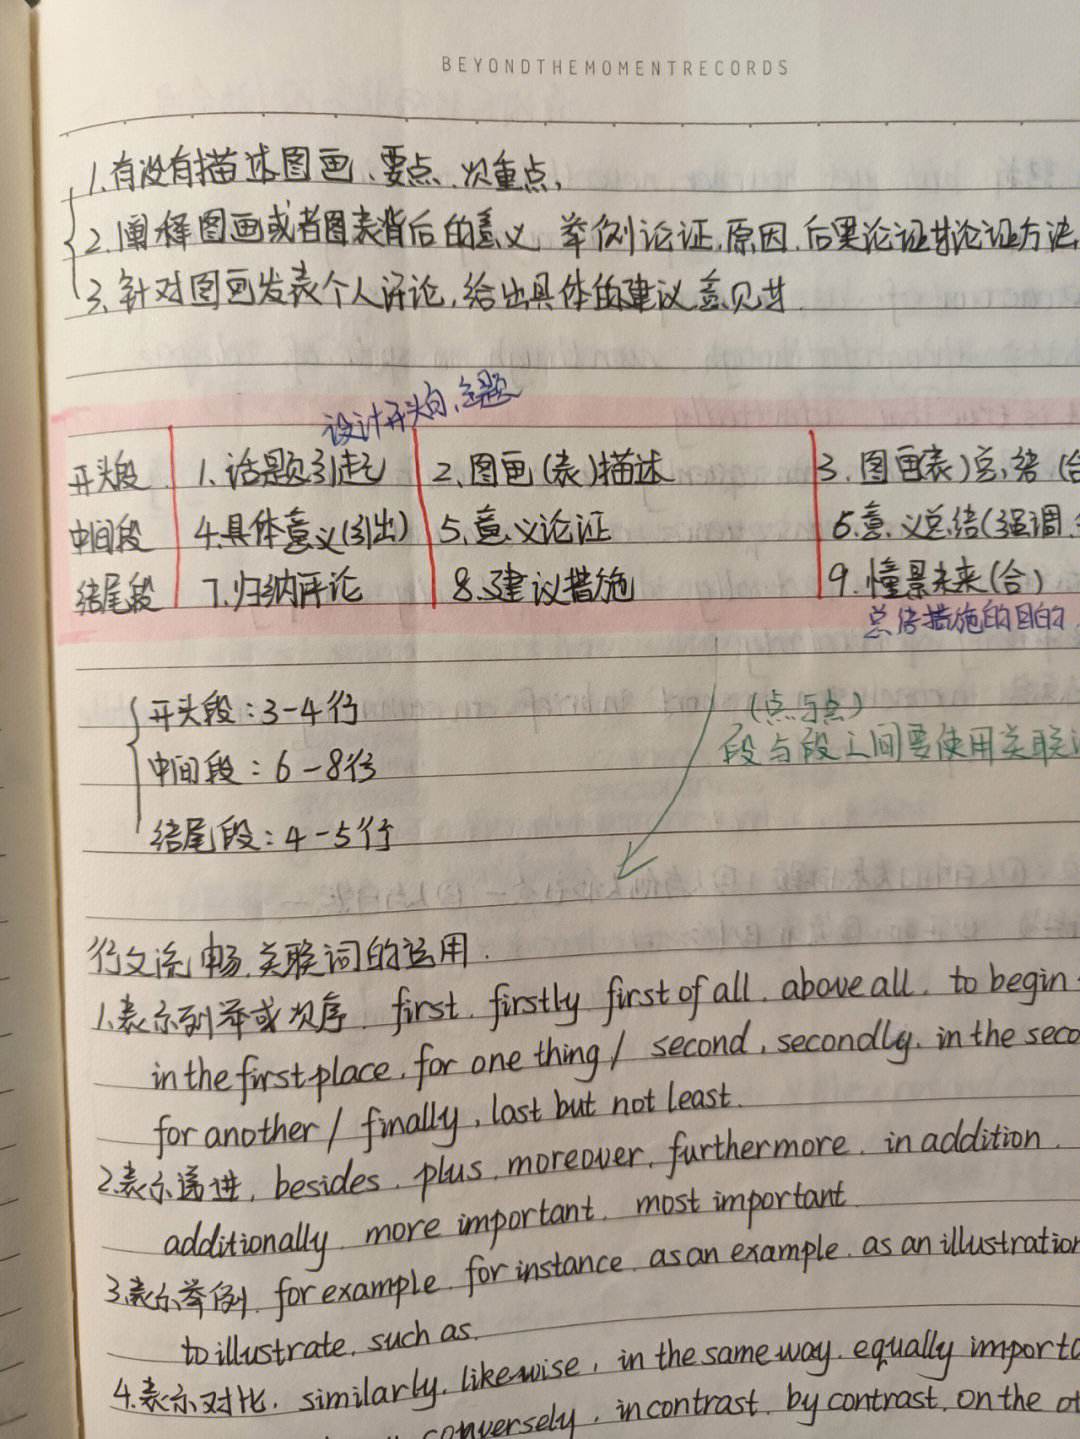 BEYONDTHEMOMENTRECORDS
1.有没有描述图画、要点、次重点,
2.阐释图画或者图表背后的意义 举例论证,原因,后果论证甘论证方法
3.针对图画发表个人评论,给出具体的建议意见甘.
设计开头句,主题
开头段 1.话题引起 2.图画(表)描述 3.图画(表)总结(合
中间段 4.具体意义(引出) 5.意义论证 6.意义总结(强调
结尾段 7.归纳评论 8.建议措施 9.憧景未来(合)
总结措施的目的
开头段:3-4行
(点与点)
段与段之间要使用关联
中间段:6-8行
结尾段:4-5行
行文流畅,关联词的运用.
1.表示列举或次序. first. firstly first of all. above all. to begin
in the first place, for one thing / second, secondly. in the seco
for another / finally, last but not least.
2.表示递进, besides. plus, moreover, furthermore, in addition.
additionally more important, most important
3.表示举例. for example for instance. as an example. as an illustration
to illustrate, such as.
4.表示对比. similarly. likewise, in the same way. equally importa
conversely, in contrast. by contrast, on the ot